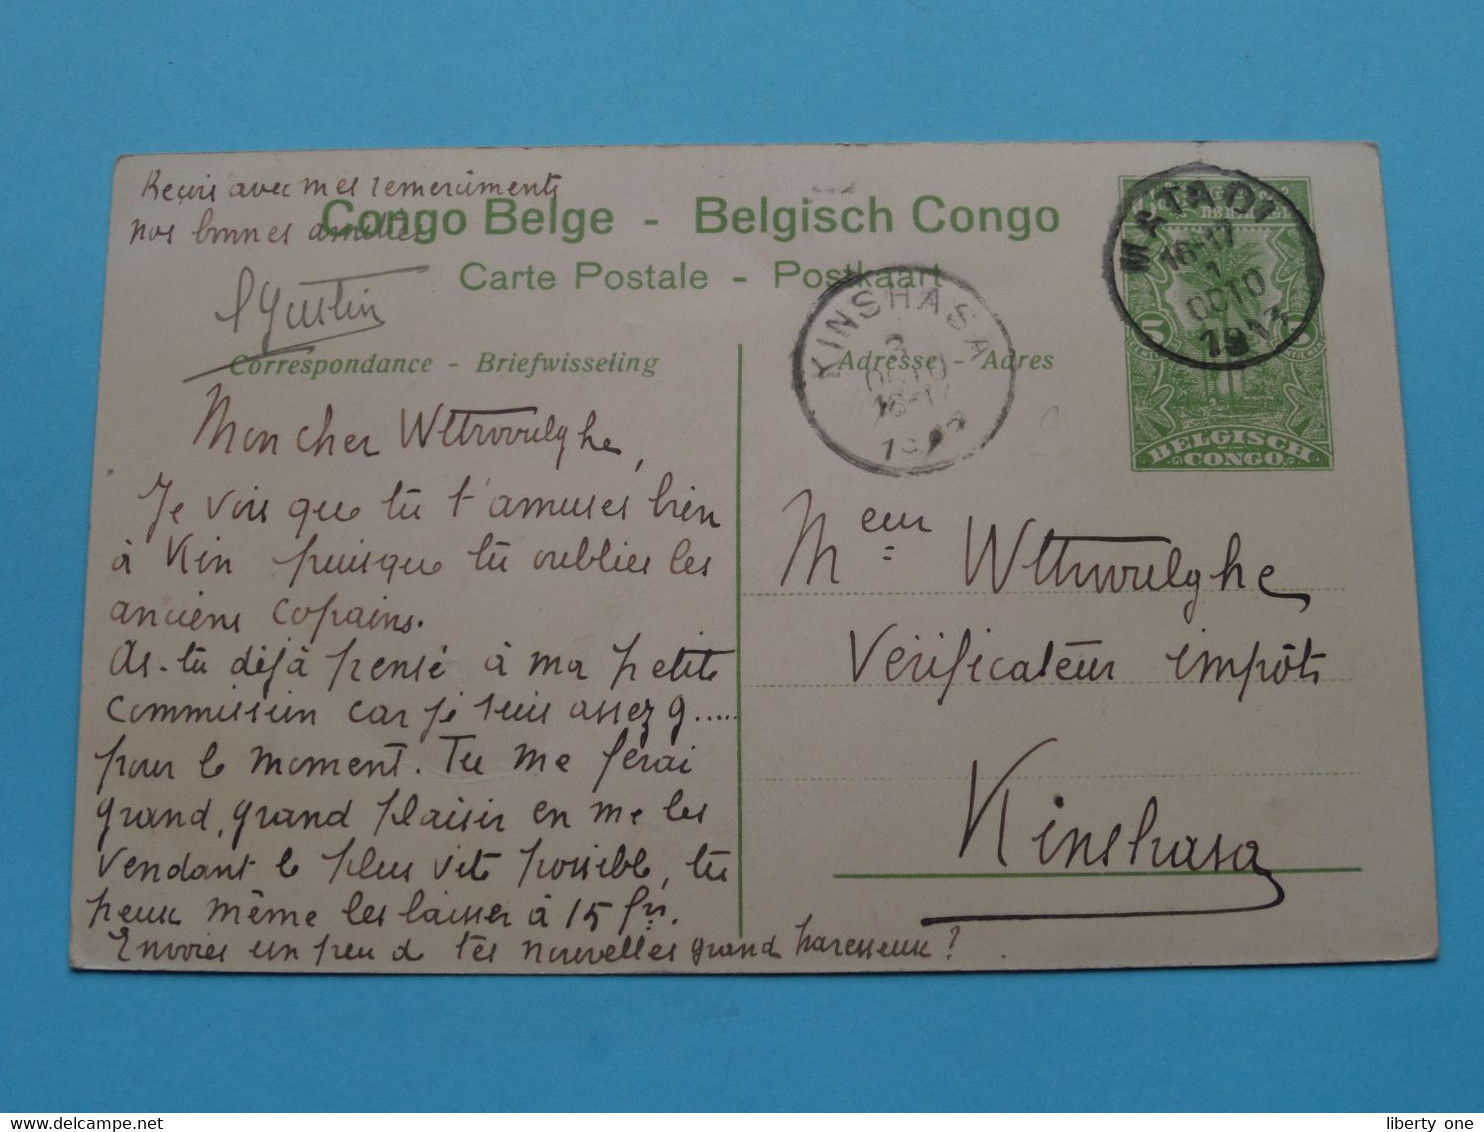 Reçois avec mes remerciments
nos bonnes amitiés
Congo Belge - Belgisch Congo
Carte Postale - Postkaart
Correspondance - Briefwisseling
Adresse - Adres
Mon cher Wttrwulghe,
Je vois que tu t'amuses bien
à Kin puisque tu oublies les
anciens copains.
As-tu déjà pensé à ma petite
Commission car je suis assez g.....
pour le moment. Tu me ferai
grand, grand plaisir en me les
vendant le plus vite possible, tu
peux même les laisser à 15 frs.
Envoies un peu d tes nouvelles grand paresseux ?
KINSHASA
3
OCTO
16-17
MATADI
16-17
1
OCTO
1913
5 5
BELGISCH
CONGO
Meur Wttrwulghe
Vérificateur impôts
Kinshasa
liberty one